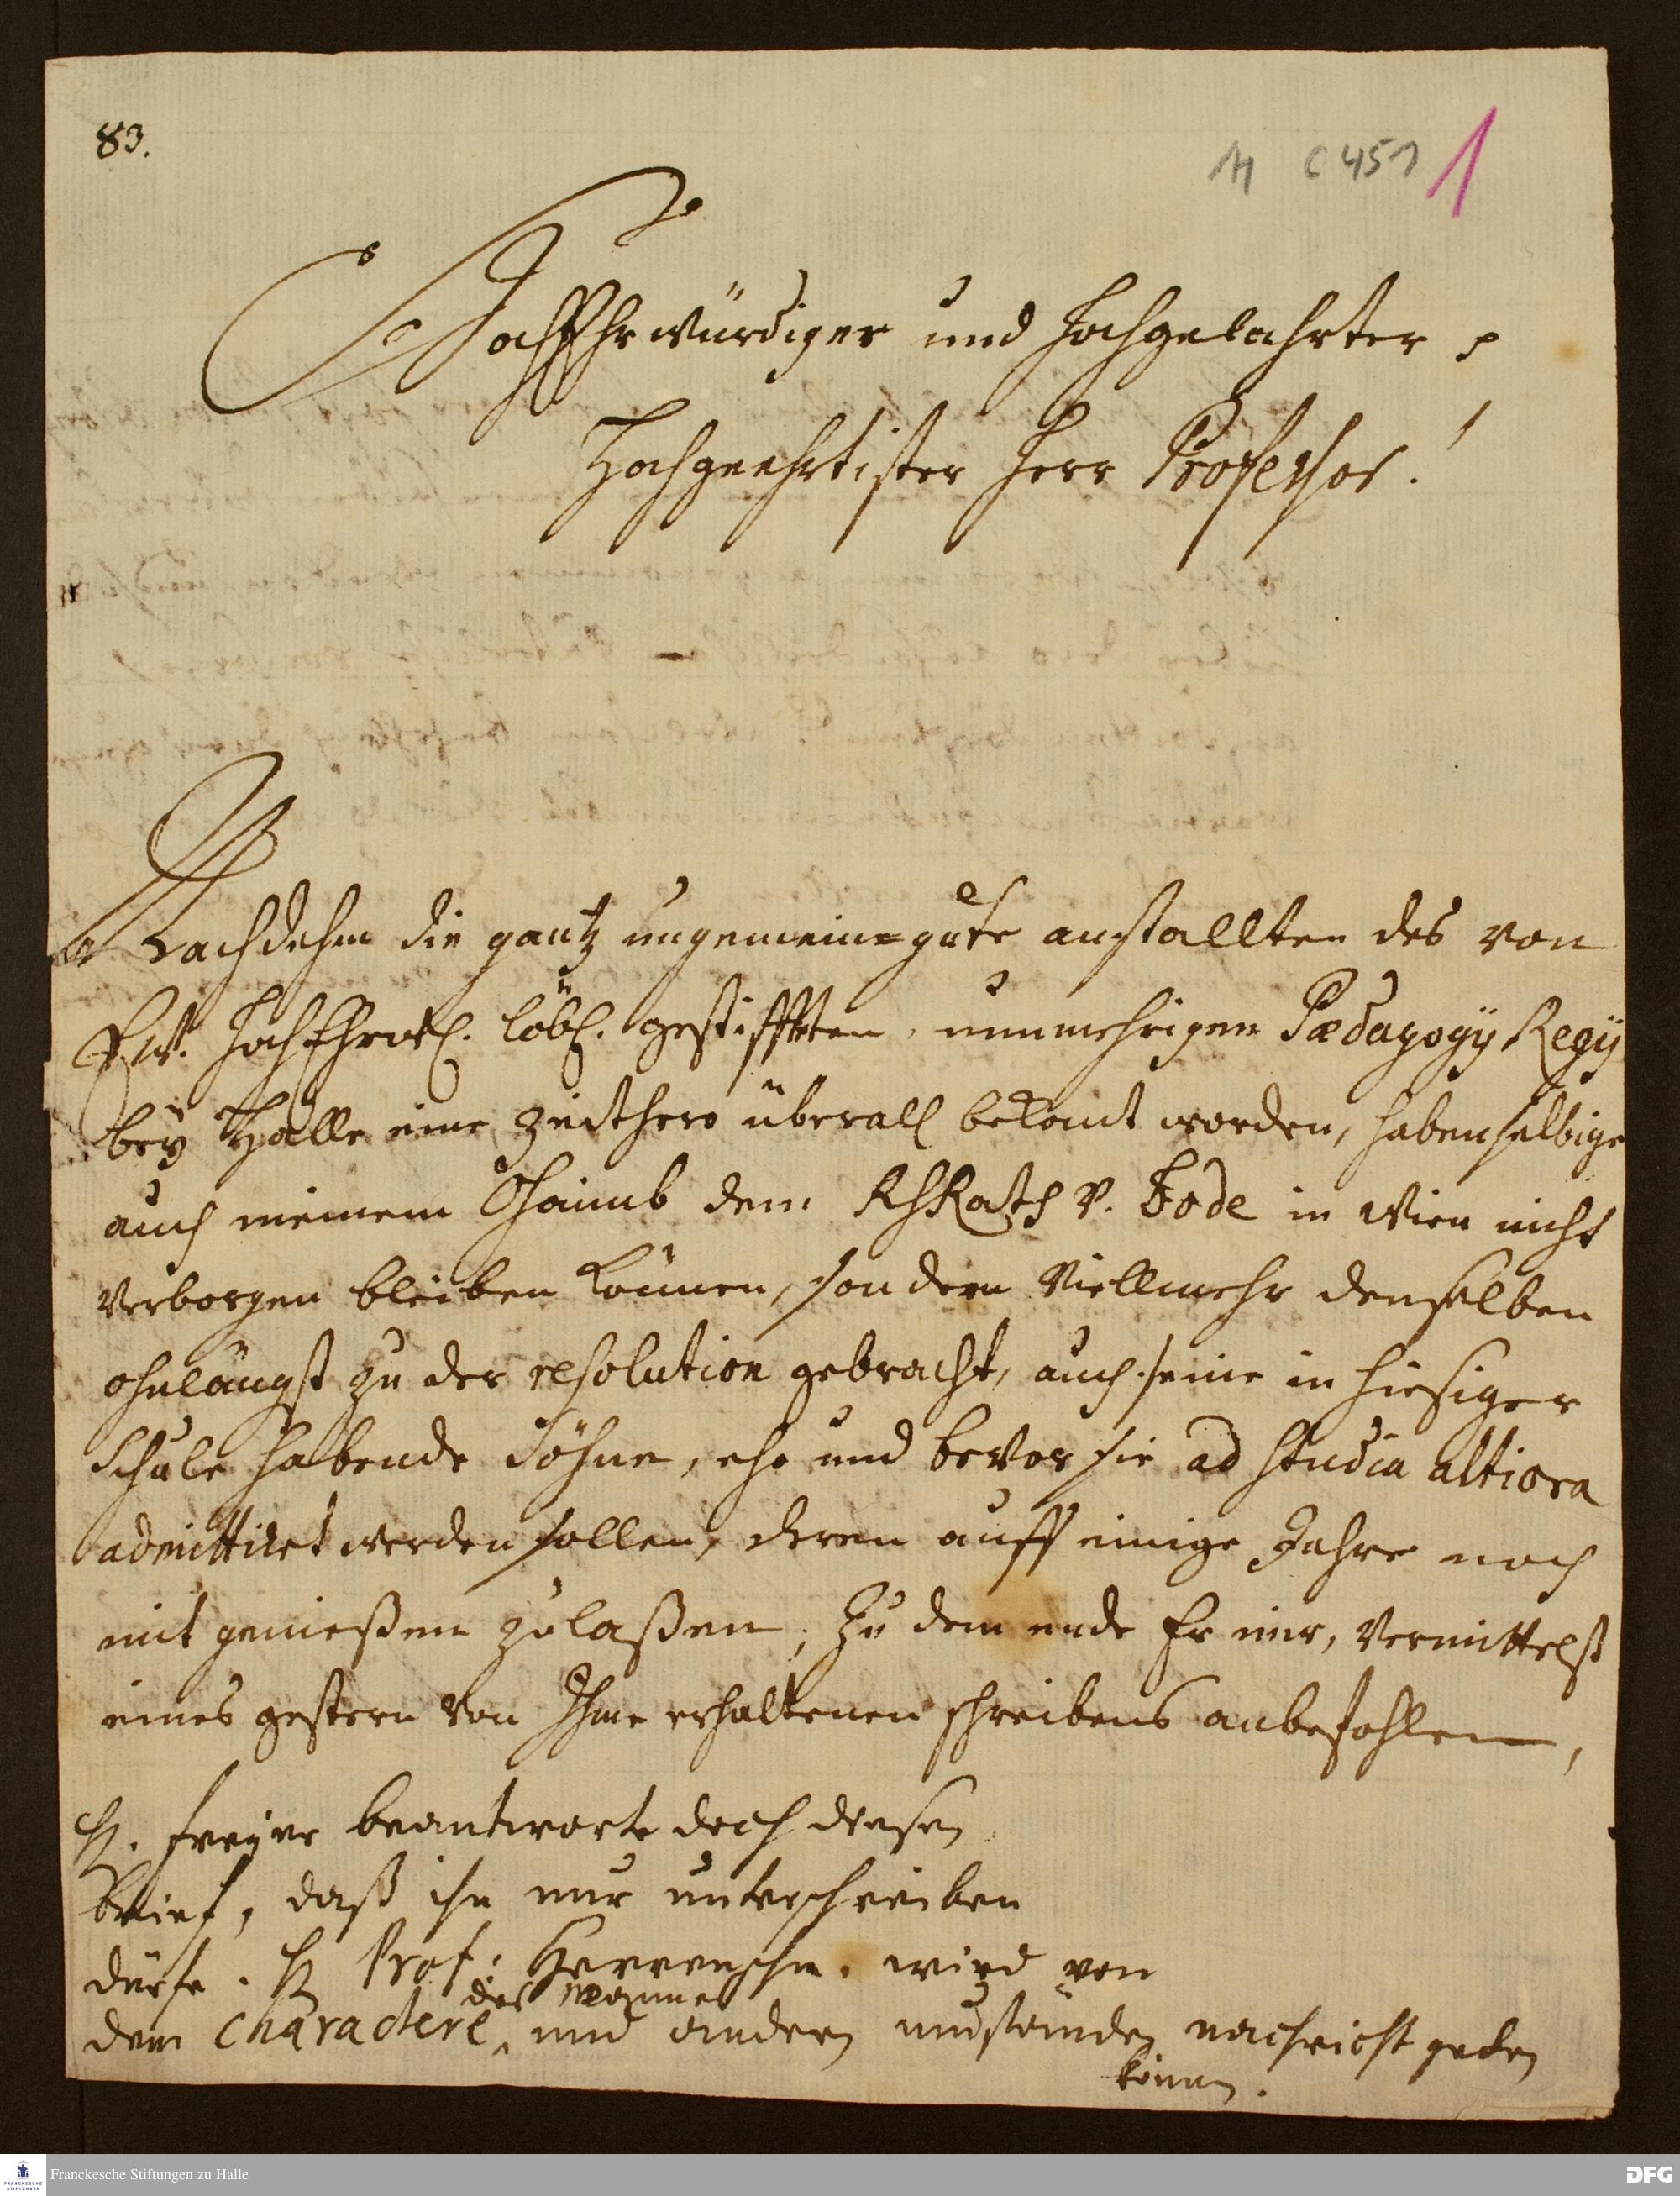 83.
H C 457 1
HochEhrwürdiger und Hochgelahrter p
Hochgeehrtister Herr Professor!
Nachdehm die gantz ungemein=gute anstallten des von
Ew. HochEhrw. löbl. gestiffteten, nunmehrigen Pædagogÿ Regÿ
beÿ Halle eine Zeithero überall bekant worden, haben selbige
auch meinem Ohaimb dem RHRath v. Bode in Wien nicht
verborgen bleiben können, sondern Viellmehr denselben
ohnlängst zu der resolution gebracht, auch seine in hiesiger
Schule habende Söhne, ehe und bevor sie ad studia altiora
admittiret werden sollen, deren auff einige Jahre noch
mit genießen zulaßen, Zu dem ende Er mir, Vermittelst
eines gestern von Ihme erhaltenen schreibens anbefohlen,
H. Freyer beantworte doch diesen
Brief, daß ihn nur unterschreiben
dürfe. H Prof. Herrnschm. wird von
des Mannes
dem Charactere, und andern umständen nachricht geben
können.
Franckesche Stiftungen zu Halle
FRANCKESCHE STIFTUNGEN
DFG